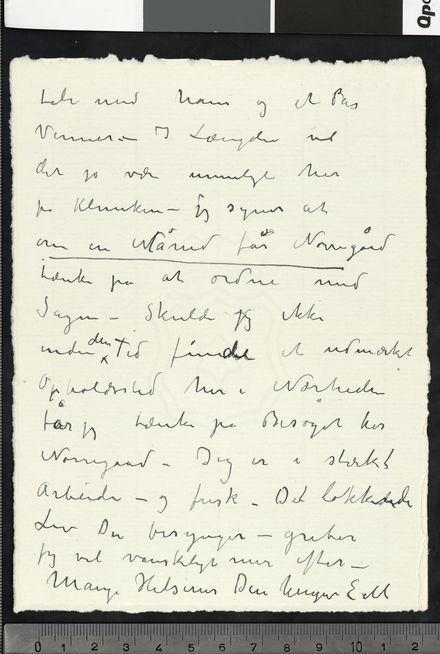 tale med ham og et Par
Venner – I Længden vil
det jo være umuligt her
på Kliniken – jeg synes at
om en Måned får Norregård
tænke på at ordne med
Sagen – Skulde jeg ikke
inden den Tid finde et udmærket
Opholdssted her i Nærheden
får jeg tænke på Besøget hos
Norregaard – Jeg er i stærkt
Arbeide – og frisk – Det lokkende
Liv Du besynger – griber
jeg vel vanskeligt mer efter –
Mange Hilsener Din hengivne E M
0 1 2 3 4 5 6 7 8 9 10 1 2